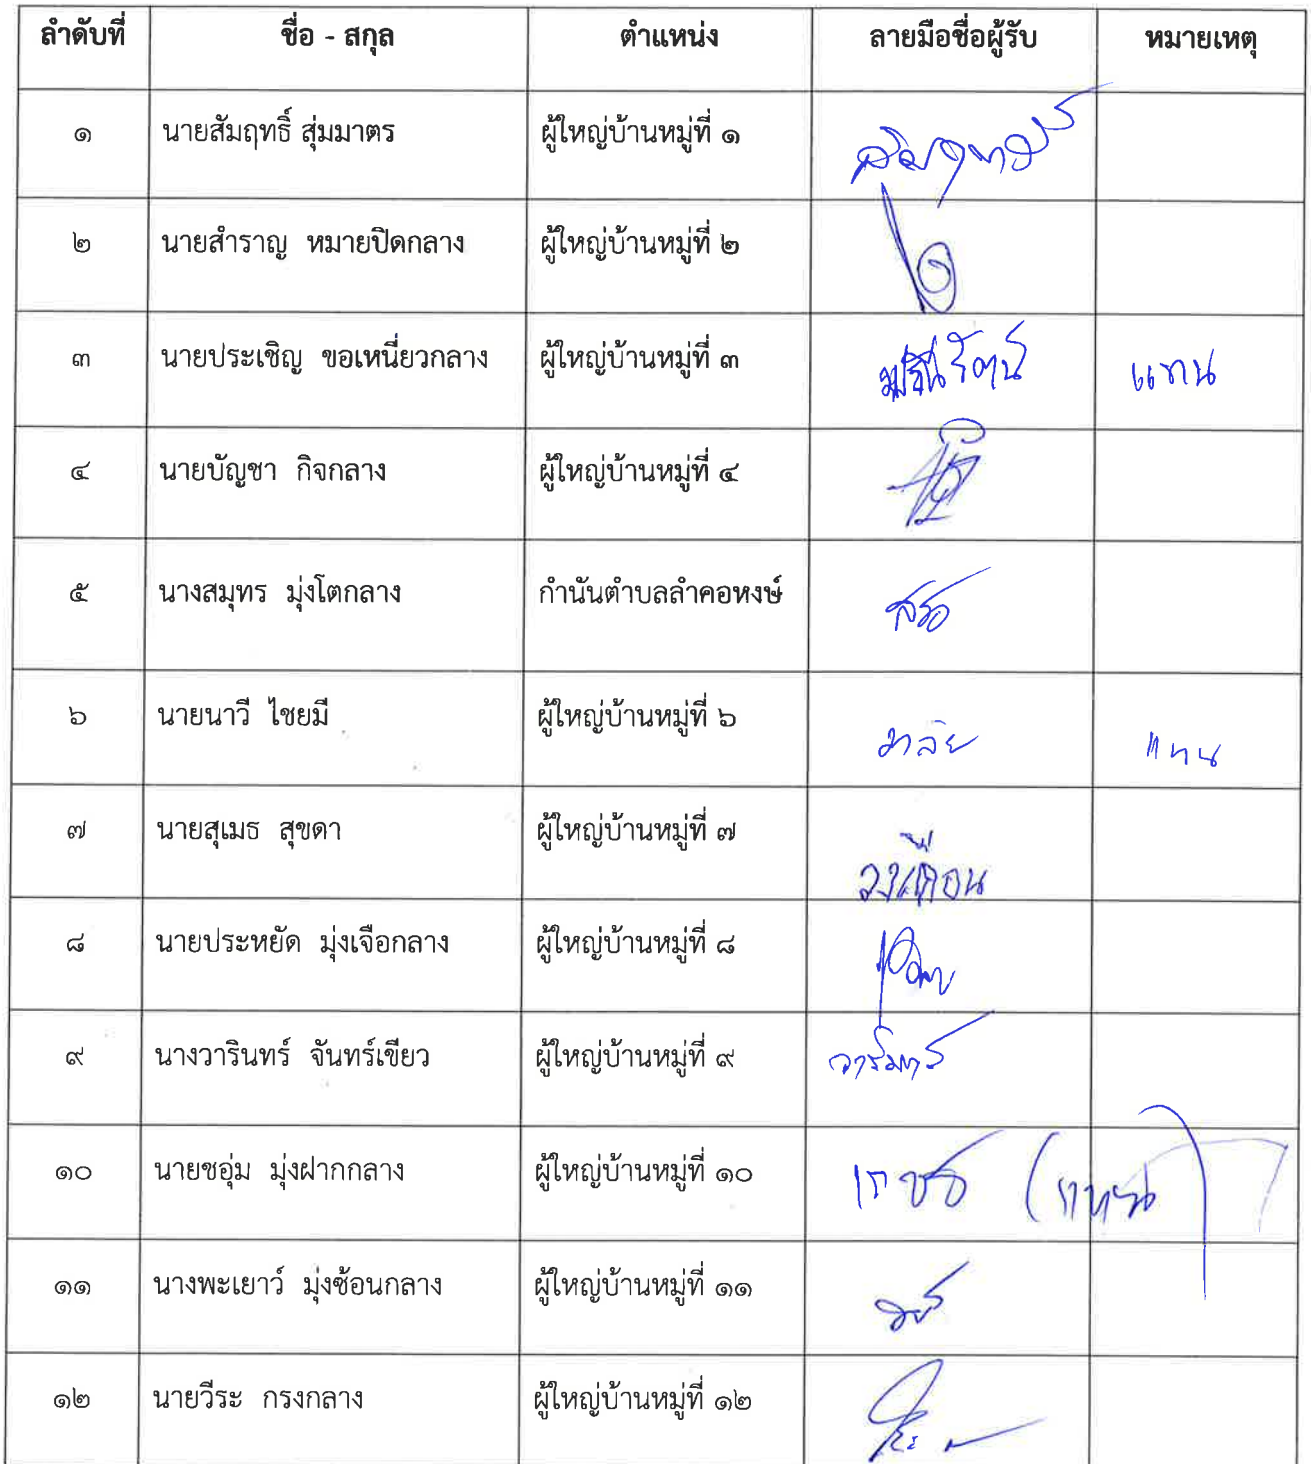 ลำดับที่ ชื่อ - สกุล ตำแหน่ง ลายมือชื่อผู้รับ หมายเหตุ
๑ นายสัมฤทธิ์ สุ่มมาตร ผู้ใหญ่บ้านหมู่ที่ ๑
๒ นายสำราญ หมายปิดกลาง ผู้ใหญ่บ้านหมู่ที่ ๒
๓ นายประเชิญ ขอเหนี่ยวกลาง ผู้ใหญ่บ้านหมู่ที่ ๓ แทน
๔ นายบัญชา กิจกลาง ผู้ใหญ่บ้านหมู่ที่ ๔
๕ นางสมุทร มุ่งโตกลาง กำนันตำบลลำคอหงษ์
๖ นายนาวี ไชยมี ผู้ใหญ่บ้านหมู่ที่ ๖ มาลัย แทน
๗ นายสุเมธ สุขดา ผู้ใหญ่บ้านหมู่ที่ ๗ วงเดือน
๘ นายประหยัด มุ่งเจือกลาง ผู้ใหญ่บ้านหมู่ที่ ๘
๙ นางวารินทร์ จันทร์เขียว ผู้ใหญ่บ้านหมู่ที่ ๙ วารินทร์
๑๐ นายชอุ่ม มุ่งฝากกลาง ผู้ใหญ่บ้านหมู่ที่ ๑๐ (แทน)
๑๑ นางพะเยาว์ มุ่งซ้อนกลาง ผู้ใหญ่บ้านหมู่ที่ ๑๑
๑๒ นายวีระ กรงกลาง ผู้ใหญ่บ้านหมู่ที่ ๑๒